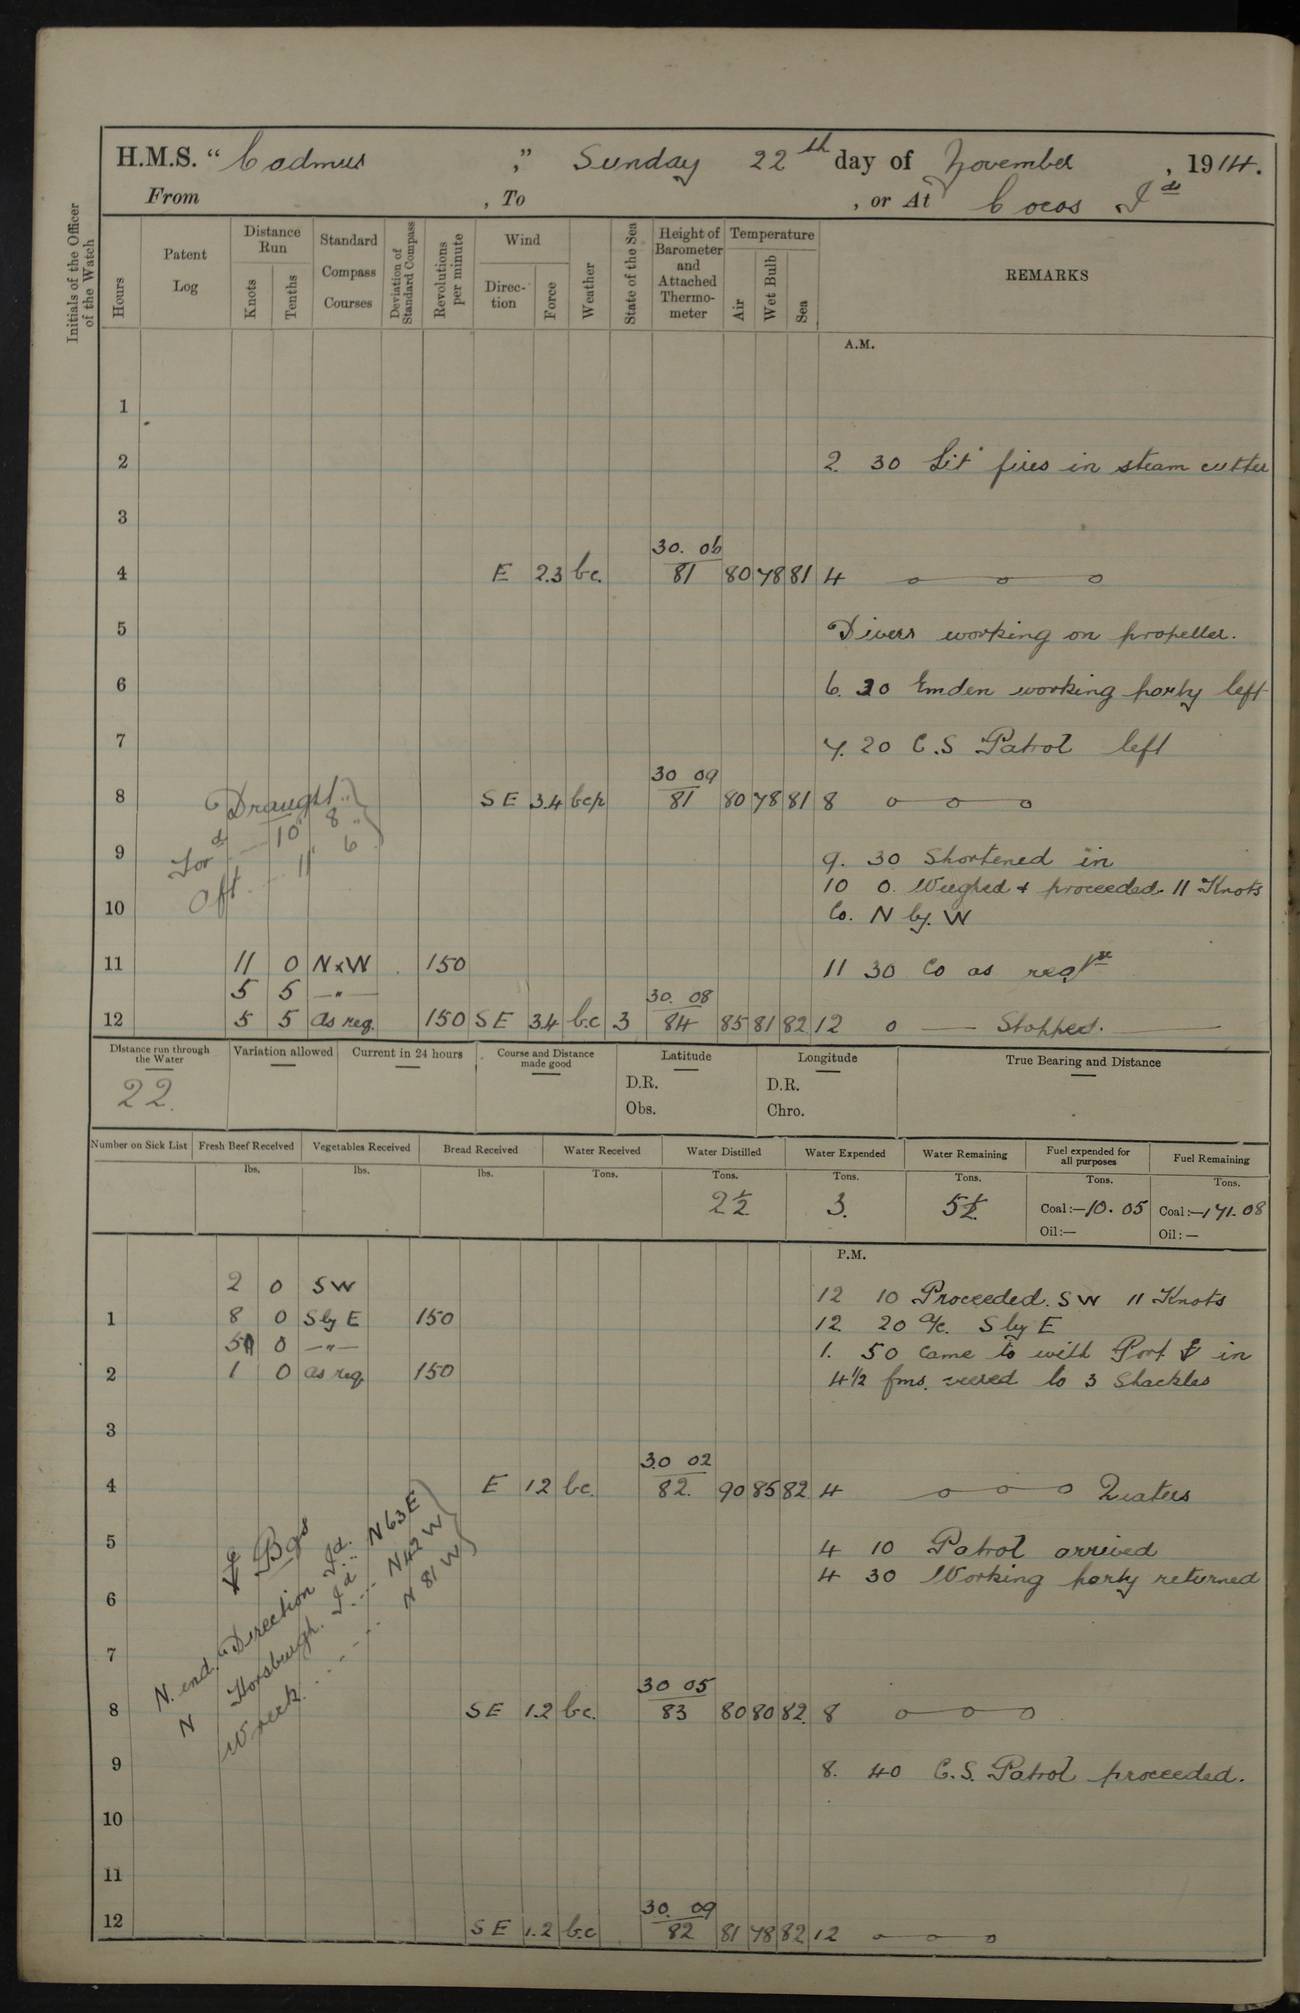 H.M.S. “Cadmus,” Sunday 22th day of November, 1914.
From , To , or At Cocos Ids
Initials of the Officer of the Watch
Hours
Patent Log
Distance Run
Knots
Tenths
Standard Compass Courses
Deviation of Standard Compass
Revolutions per minute
Wind
Direction
Force
Weather
State of the Sea
Height of Barometer and Attached Thermometer
Temperature
Air
Wet Bulb
Sea
REMARKS
A.M.
1
2 2. 30 Lit fires in steam cutter
3
30. 06
4 E 2.3 bc. 81 80 78 81 4
5 Divers working on propeller.
6 6. 30 Emden working party left
7 7. 20 C.S Patrol left
30 09
8 SE 3.4 bcp 81 80 78 81 8
Draught
Ford 10' 8"
Aft 11' 6
9 9. 30 Shortened in
10 0. Weighed + proceeded 11 Knots
10 Co. N by. W
11 11 0 NxW 150 11 30 Co as reqd
5 5 —"— 30. 08
12 5 5 as req. 150 SE 3.4 b.c 3 84 85 81 82 12 0 — Stopped. —
Distance run through the Water
22.
Variation allowed
Current in 24 hours
Course and Distance made good
Latitude
D.R.
Obs.
Longitude
D.R.
Chro.
True Bearing and Distance
Number on Sick List
Fresh Beef Received lbs.
Vegetables Received lbs.
Bread Received lbs.
Water Received Tons.
Water Distilled Tons.
2½
Water Expended Tons.
3.
Water Remaining Tons.
5½
Fuel expended for all purposes Tons.
Coal:—10.05
Oil:—
Fuel Remaining Tons.
Coal:—171.08
Oil:—
P.M.
2 0 SW 12 10 Proceeded. SW 11 Knots
1 8 0 S by E 150 12 20 a/c. S by E
0 —"— 1. 50 Came to with Port ⚓ in
2 1 0 as req 150 4½ fms. veered to 3 Shackles
3
30 02
4 E 12 bc. 82. 90 85 82 4 Quaters
5 4 10 Patrol arrived
4 30 Working party returned
6
⚓ Bgs
N. end. Direction Id. N 63 E
N Horsburgh. Id ... N 42 W
Wreck. ..... N 81 W
7
30 05
8 SE 1.2 bc. 83 80 80 82. 8
9 8. 40 C.S. Patrol proceeded.
10
11
30. 09
12 SE 1.2 b.c 82 81 78 82 12